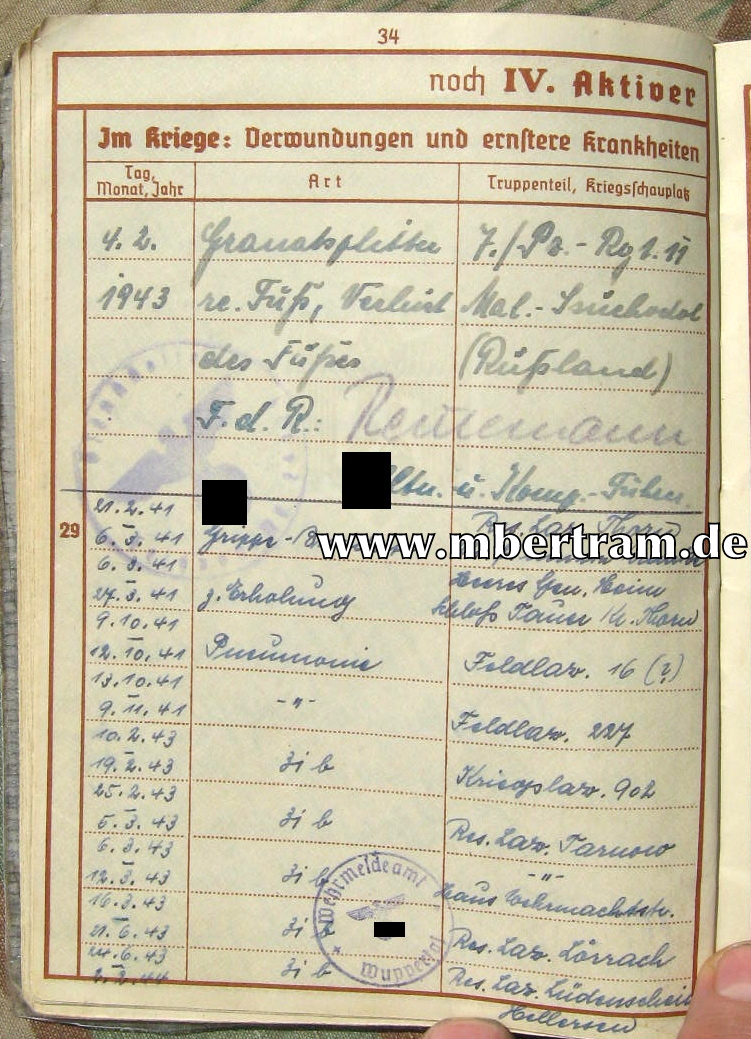 34
noch IV. Aktiver
Im Kriege: Verwundungen und ernstere Krankheiten
Tag, Monat, Jahr Art Truppenteil, Kriegsschauplatz
4.2. Granatsplitter 7./Pz.-Rgt. 11
1943 re. Fuß, Verlust Mal.-
des Fußes (Rußland)
F. d. R.:
u. Komp.-Führer.
29
21.2.41 Res. Laz. Thorn
6.3.41 Grippe-
6.3.41 Heeres Gen. Heim
27.3.41 z. Erholung Schloß Tauer Kr. Thorn
9.10.41
12.10.41 Pneumonie Feldlaz. 16 (?)
13.10.41
9.11.41 -"- Feldlaz. 227
10.2.43
19.2.43 31 b Kriegslaz. 902
25.2.43
5.3.43 31 b Res. Laz. Tarnow
6.3.43
12.3.43 31 b -"- Haus Wehrmachtstr.
16.3.43
21.6.43 31 b Res. Laz. Lörrach
24.6.43
31 b Res. Laz. Lüdenscheid
Hellersen
Wehrmeldeamt
Wuppertal
www.mbertram.de